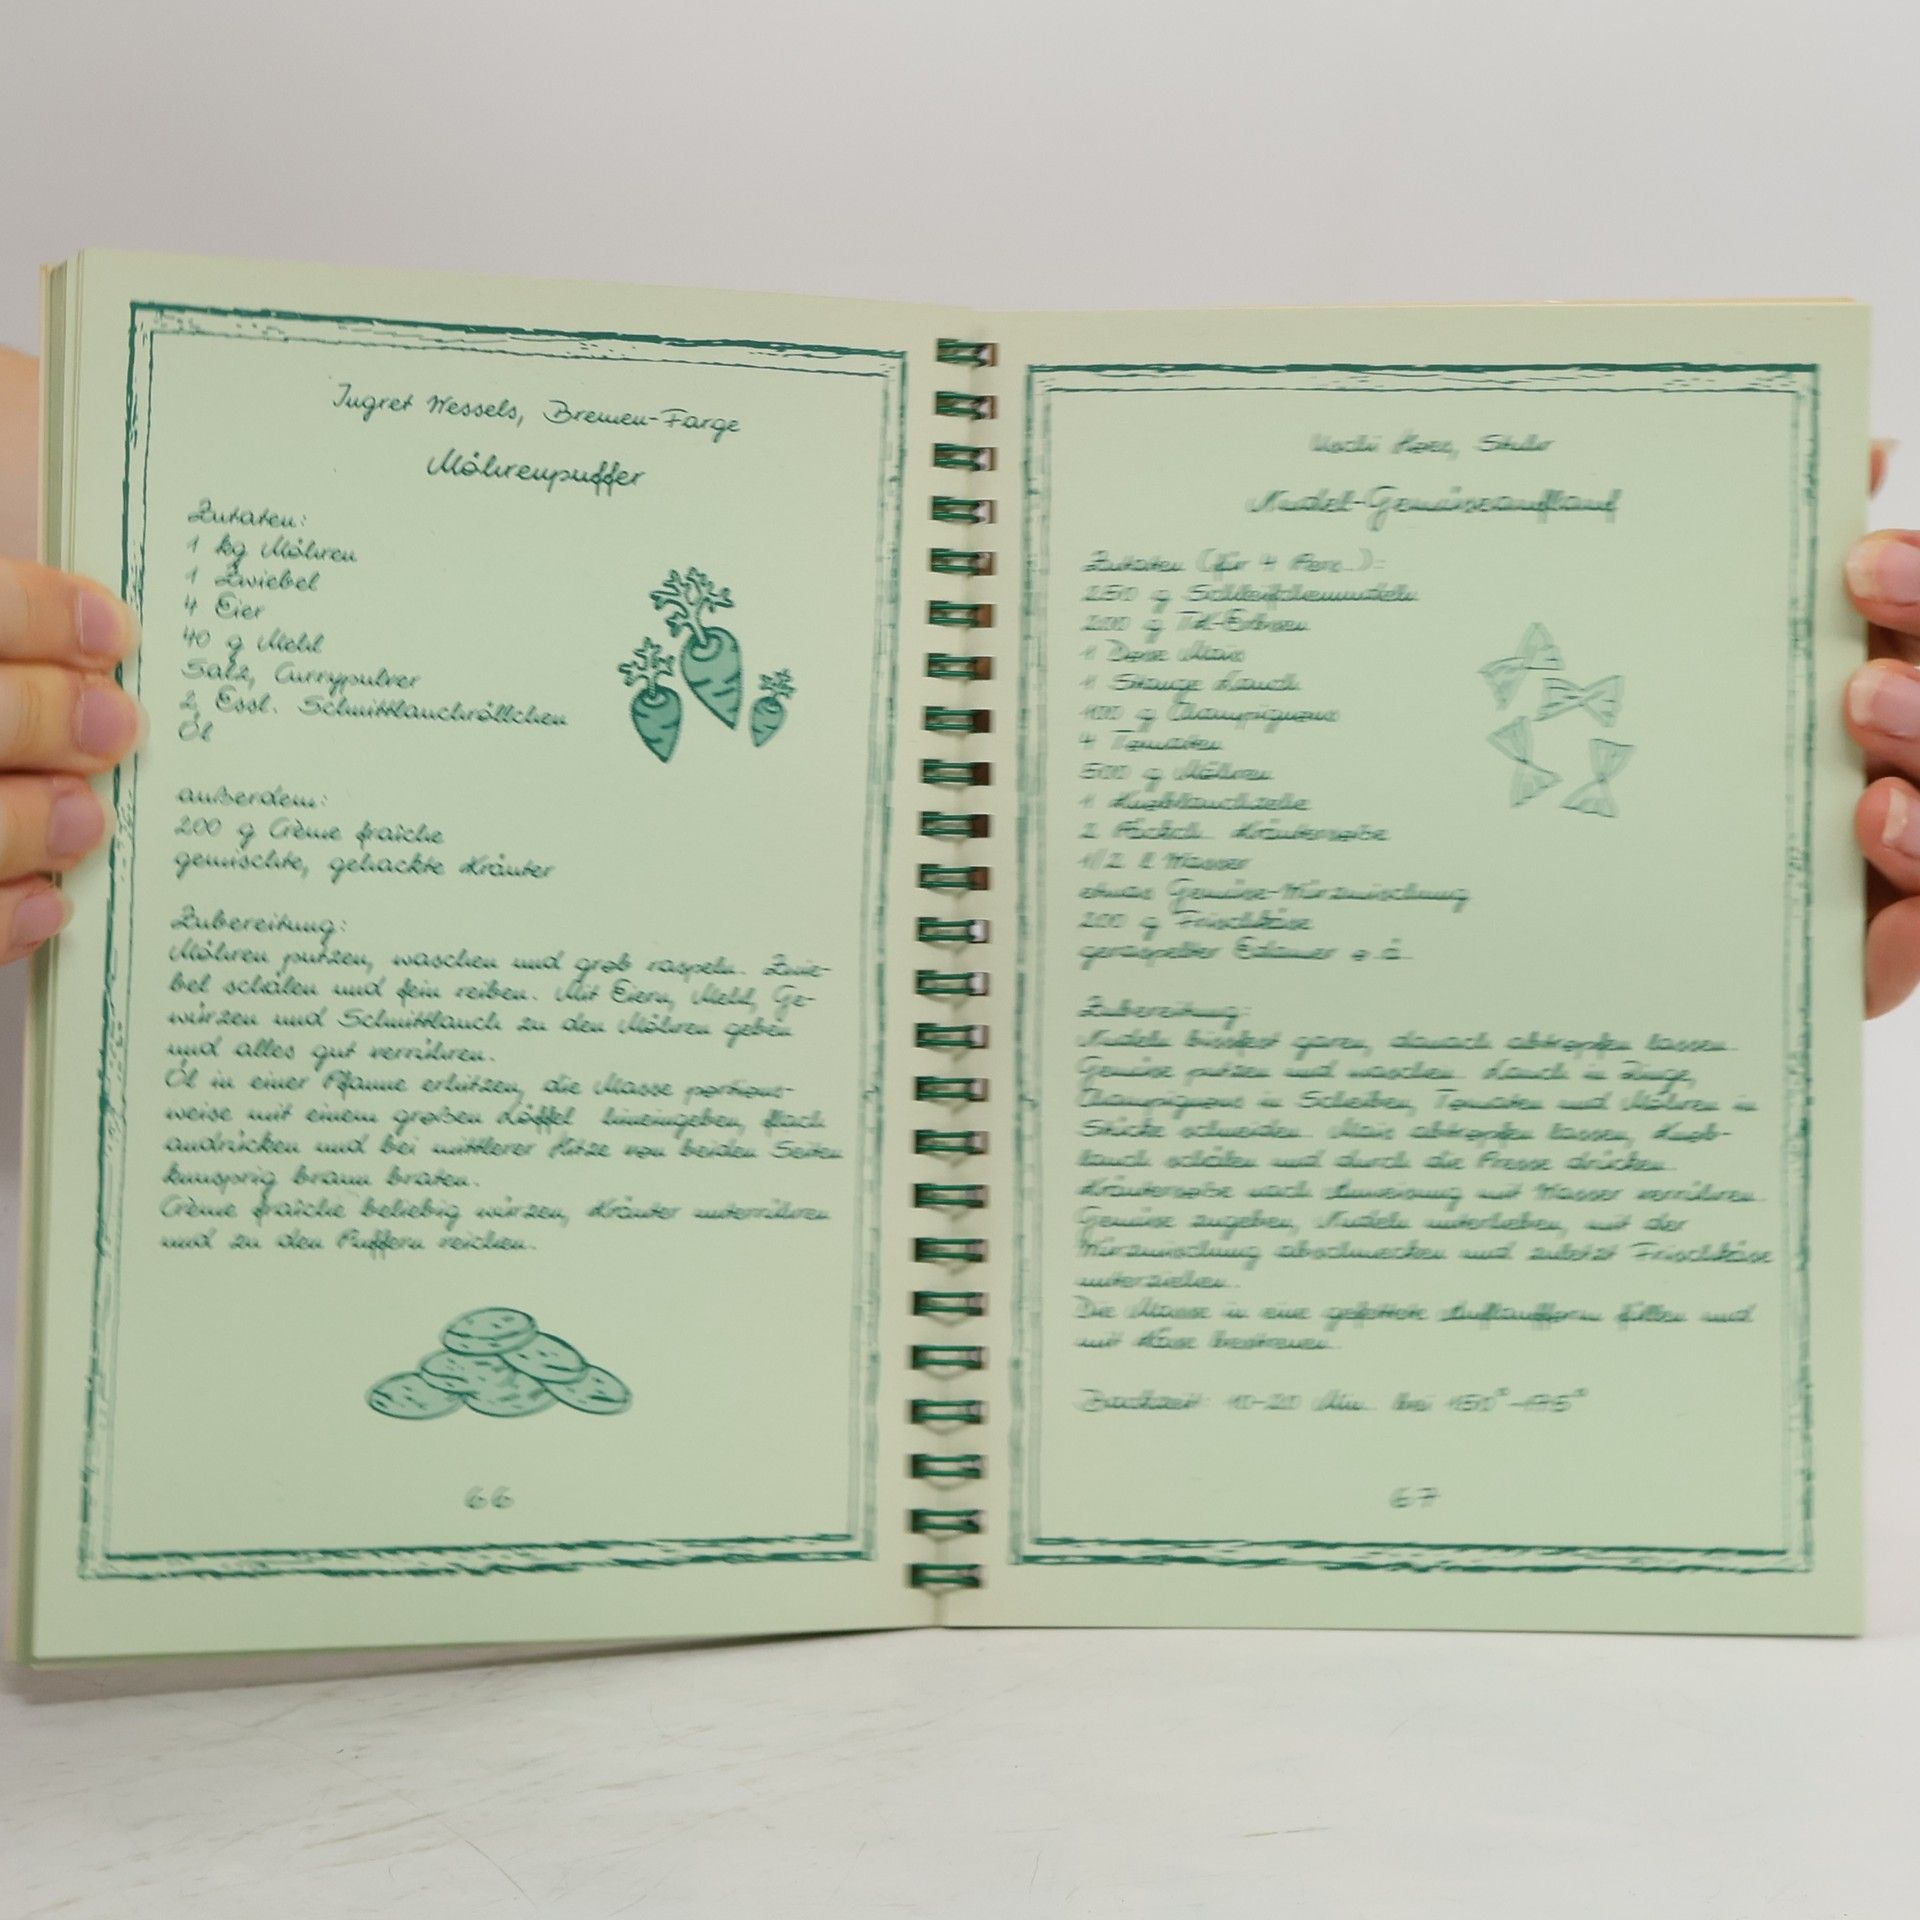 Ingret Wessels, Bremen-Farge
Möhrenpuffer
Zutaten:
1 kg Möhren
1 Zwiebel
4 Eier
40 g Mehl
Salz, Currypulver
2 Essl. Schnittlauchröllchen
Öl
außerdem:
200 g Crème fraîche
gemischte, gehackte Kräuter
Zubereitung:
Möhren putzen, waschen und grob raspeln. Zwie-
bel schälen und fein reiben. Mit Eiern, Mehl, Ge-
würzen und Schnittlauch zu den Möhren geben
und alles gut verrühren.
Öl in einer Pfanne erhitzen, die Masse portions-
weise mit einem großen Löffel hineingeben, flach
andrücken und bei mittlerer Hitze von beiden Seiten
knusprig braun braten.
Crème fraîche beliebig würzen, Kräuter unterrühren
und zu den Puffern reichen.
66
Stuhr
Nudel-Gemüseauflauf
Zutaten (für 4 Pers.):
250 g Schleifchennudeln
200 g TK-Erbsen
1 Dose Mais
1 Stange Lauch
100 g Champignons
4 Tomaten
500 g Möhren
1 Knoblauchzehe
2 Päckch. Kräutersoße
1/2 l Wasser
etwas Gemüse-Würzmischung
200 g Frischkäse
geraspelter Edamer o.ä.
Zubereitung:
Nudeln bissfest garen, danach abtropfen lassen.
Gemüse putzen und waschen. Lauch in Ringe,
Champignons in Scheiben, Tomaten und Möhren in
Stücke schneiden. Mais abtropfen lassen, Knob-
lauch schälen und durch die Presse drücken.
Kräutersoße nach Anweisung mit Wasser verrühren.
Gemüse zugeben, Nudeln unterheben, mit der
Würzmischung abschmecken und zuletzt Frischkäse
unterziehen.
Die Masse in eine gefettete Auflaufform füllen und
mit Käse bestreuen.
Backzeit: 10-20 Min. bei 150°-175°
67